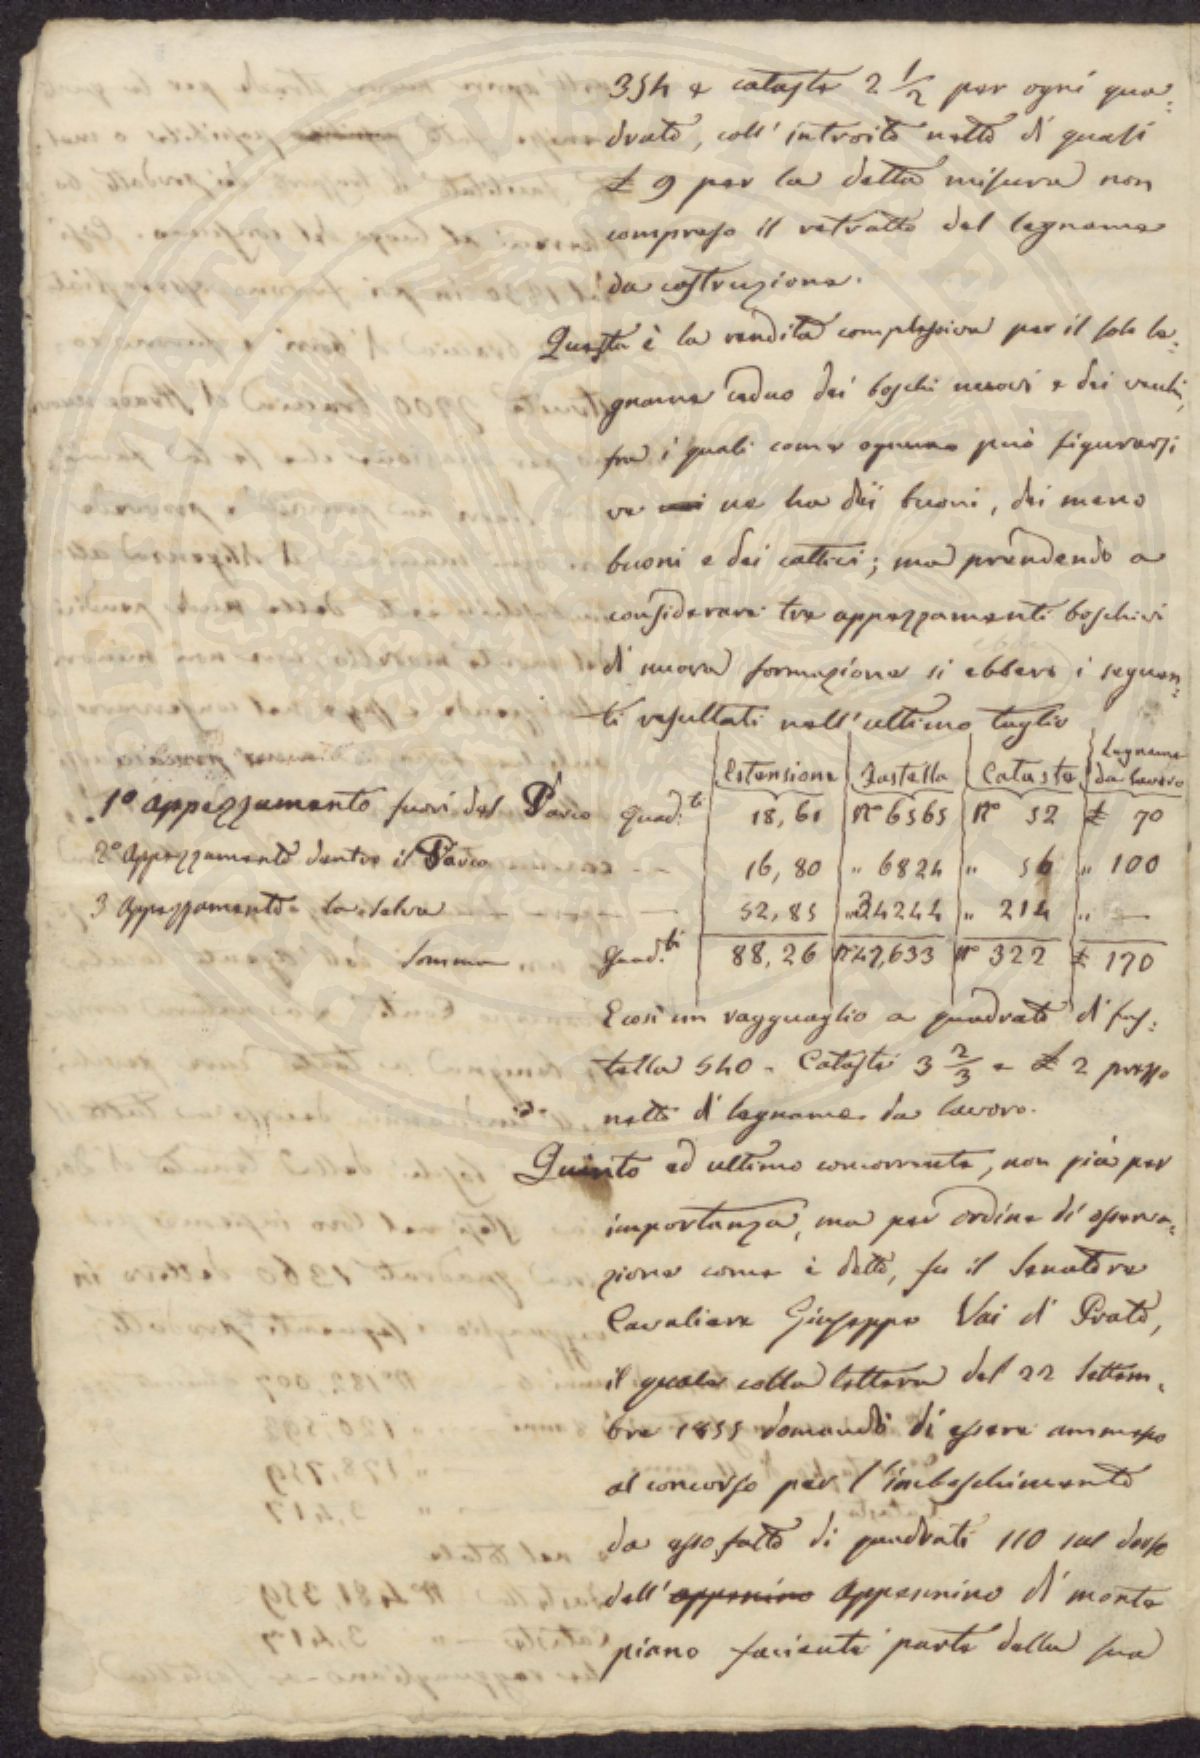 354 e cataste 2 1/2 per ogni qua=
drato, coll' introito netto di quasi
£ 9 per la detta misura non
compreso il retratto del legname
da costruzione.
Questa è la rendita complessiva per il solo le=
gname ceduo dei boschi nuovi e dei vecchi,
fra i quali come ognuno può figurarsi
ve ne ha dei buoni, dei meno
buoni e dei cattivi; ma prendendo a
considerare tre appezzamenti boschivi
di nuova formazione si ebbero i seguen=
ti resultati nell'ultimo taglio
Estensione Fastella Cataste Legname da lavoro
1º Appezzamento fuori del Parco Quad.ti 18,61 Nº 6565 Nº 52 £ 70
2º Appezzamento dentro il Parco — — 16,80 " 6824 " 56 " 100
3 Appezzamento la Selva — — — 52,85 " 34244 " 214 " —
Somma Quad.ti 88,26 Nº 47,633 Nº 322 £ 170
E così un ragguaglio a quadrato di fas=
tella 540 - Cataste 3 2/3 e £ 2 prezzo
netto di legname da lavoro.
Quinto ed ultimo concorrente, non già per
importanza, ma per ordine di esposi=
zione come è detto, fu il Senatore
Cavaliere Giuseppe Vai di Prato,
il quale colla lettera del 22 Settem=
bre 1855 domandò di essere ammesso
al concorso per l'imboschimento
da esso fatto di quadrati 110 sul dosso
dell' appenino Appennino di monte
piano facienti parte della sua